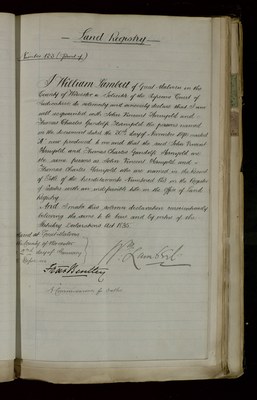 Land Registry
Number 420 (Part of)
I William Lambert of Great Malvern in the
County of Worcester a Solicitor of the Supreme Court of
Judicature do solemnly and sincerely declare that I am
well acquainted with John Vincent Hornyold and
Thomas Charles Gandolfi Hornyold the persons named
in the document dated the day of November 1890 marked
now produced to me and that the said John Vincent
Hornyold and Thomas Charles Gandolfi Hornyold are
the same persons as John Vincent Hornyold and
Thomas Charles Hornyold who are named in the Record
of Title of the hereditaments Numbered 420 on the Register
of Estates with an indefeasible title in the Office of Land
Registry
And I make this solemn declaration conscientiously
believing the same to be true and by virtue of the
Statutory Declarations Act 1835
Declared at Great Malvern
in the County of Worcester
this 2nd day of January
Before me
Wm Lambert
A Commissioner for Oaths